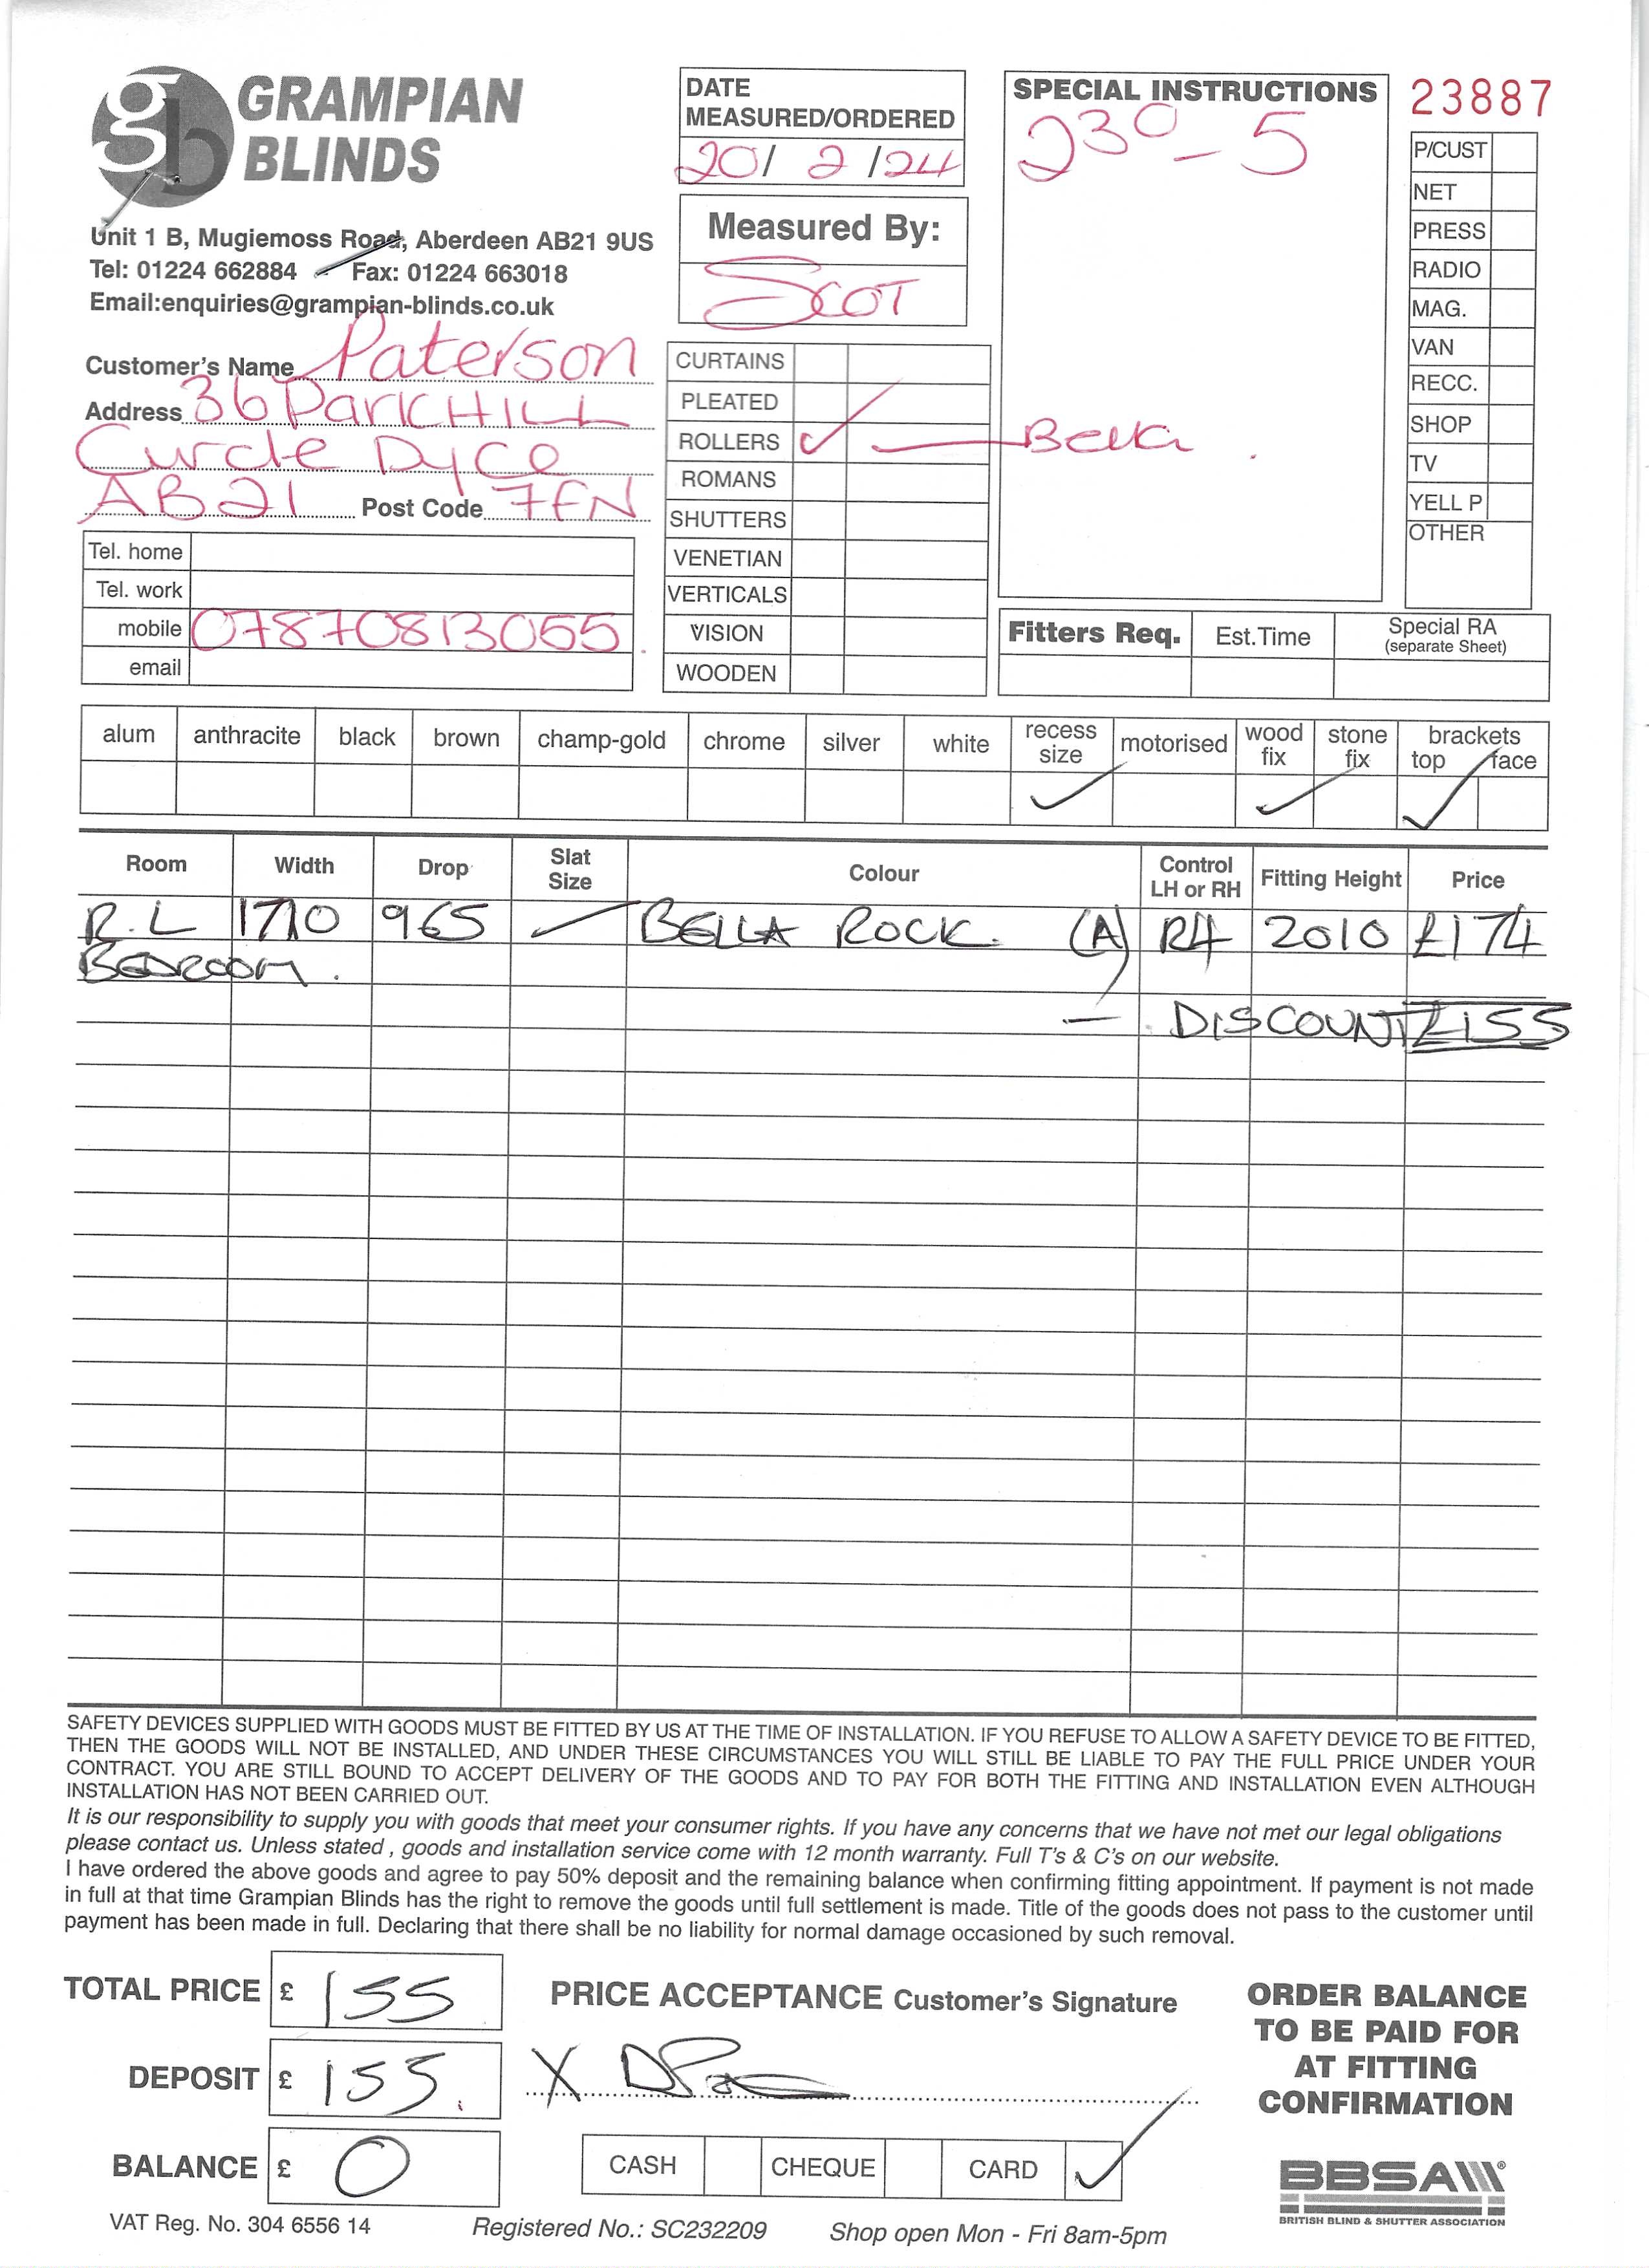 GRAMPIAN
BLINDS
Unit 1 B, Mugiemoss Road, Aberdeen AB21 9US
Tel: 01224 662884 Fax: 01224 663018
Email:enquiries@grampian-blinds.co.uk
DATE
MEASURED/ORDERED
20/ 2 /24
Measured By:
SCOT
SPECIAL INSTRUCTIONS
230 - 5
23887
P/CUST
NET
PRESS
RADIO
MAG.
VAN
RECC.
SHOP
TV
YELL P
OTHER
Customer's Name Paterson
Address 36 ParkHILL
Circle Dyce
AB21 Post Code 7FN
Tel. home
Tel. work
mobile 07870813055
email
CURTAINS
PLEATED
ROLLERS ✓ — Bella .
ROMANS
SHUTTERS
VENETIAN
VERTICALS
VISION
WOODEN
Fitters Req. Est.Time Special RA
(separate Sheet)
alum anthracite black brown champ-gold chrome silver white recess size motorised wood fix stone fix brackets top face
✓ ✓ ✓
Room Width Drop Slat Size Colour Control LH or RH Fitting Height Price
R.L 1710 965 BELLA ROCK. (A) RH 2010 £174
BEDROOM.
— DISCOUNT £155
SAFETY DEVICES SUPPLIED WITH GOODS MUST BE FITTED BY US AT THE TIME OF INSTALLATION. IF YOU REFUSE TO ALLOW A SAFETY DEVICE TO BE FITTED,
THEN THE GOODS WILL NOT BE INSTALLED, AND UNDER THESE CIRCUMSTANCES YOU WILL STILL BE LIABLE TO PAY THE FULL PRICE UNDER YOUR
CONTRACT. YOU ARE STILL BOUND TO ACCEPT DELIVERY OF THE GOODS AND TO PAY FOR BOTH THE FITTING AND INSTALLATION EVEN ALTHOUGH
INSTALLATION HAS NOT BEEN CARRIED OUT.
It is our responsibility to supply you with goods that meet your consumer rights. If you have any concerns that we have not met our legal obligations
please contact us. Unless stated , goods and installation service come with 12 month warranty. Full T's & C's on our website.
I have ordered the above goods and agree to pay 50% deposit and the remaining balance when confirming fitting appointment. If payment is not made
in full at that time Grampian Blinds has the right to remove the goods until full settlement is made. Title of the goods does not pass to the customer until
payment has been made in full. Declaring that there shall be no liability for normal damage occasioned by such removal.
TOTAL PRICE £ 155
DEPOSIT £ 155.
BALANCE £ 0
PRICE ACCEPTANCE Customer's Signature
X
CASH CHEQUE CARD ✓
ORDER BALANCE
TO BE PAID FOR
AT FITTING
CONFIRMATION
BBSA ®
BRITISH BLIND & SHUTTER ASSOCIATION
VAT Reg. No. 304 6556 14 Registered No.: SC232209 Shop open Mon - Fri 8am-5pm